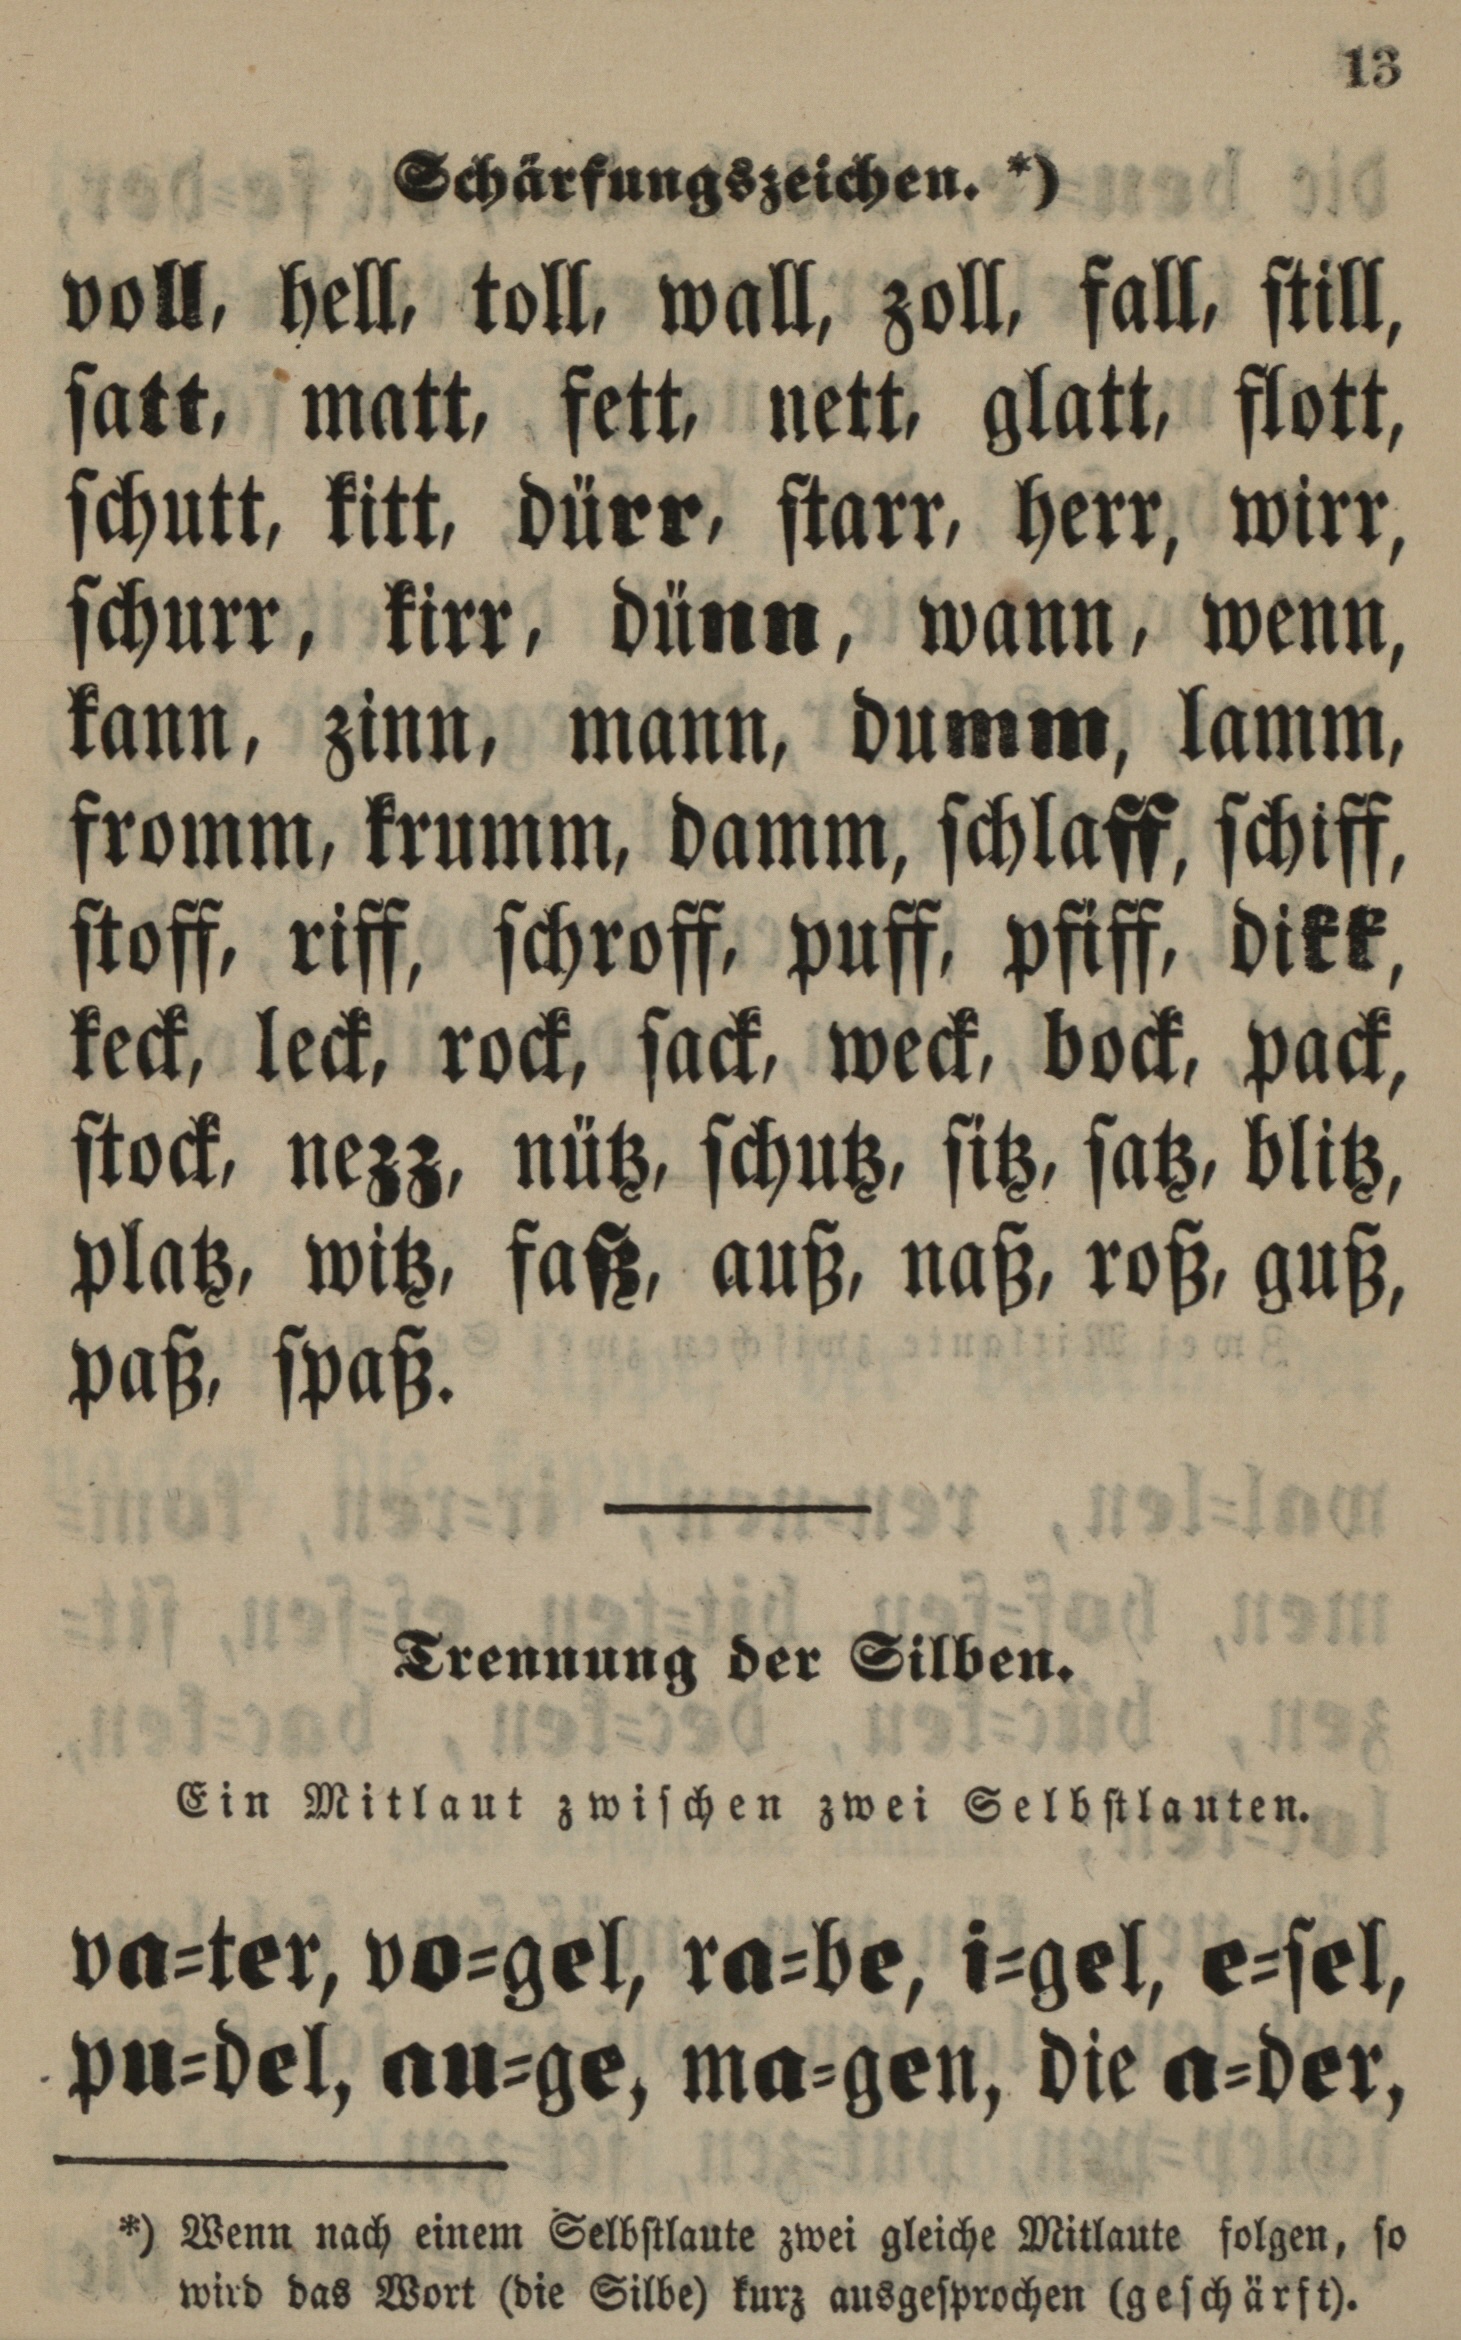 13
Schärfungszeichen. *)
voll, hell, toll, wall, zoll, fall, ſtill,
ſatt, matt, fett, nett, glatt, flott,
ſchutt, kitt, dürr, ſtarr, herr, wirr,
ſchurr, kirr, dünn, wann, wenn,
kann, zinn, mann, dumm, lamm,
fromm, krumm, damm, ſchlaff, ſchiff,
ſtoff, riff, ſchroff, puff, pfiff, dikk,
keck, leck, rock, ſack, weck, bock, pack,
ſtock, nezz, nütz, ſchutz, ſitz, ſatz, blitz,
platz, witz, faß, auß, naß, roß, guß,
paß, ſpaß.
Trennung der Silben.
Ein Mitlaut zwiſchen zwei Selbſtlauten.
va=ter, vo=gel, ra=be, i=gel, e=ſel,
pu=del, au=ge, ma=gen, die a=der,
*) Wenn nach einem Selbſtlaute zwei gleiche Mitlaute folgen, ſo
wird das Wort (die Silbe) kurz ausgeſprochen (geſchärft).